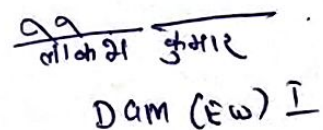 लोकेश कुमार
DGM (EW) I